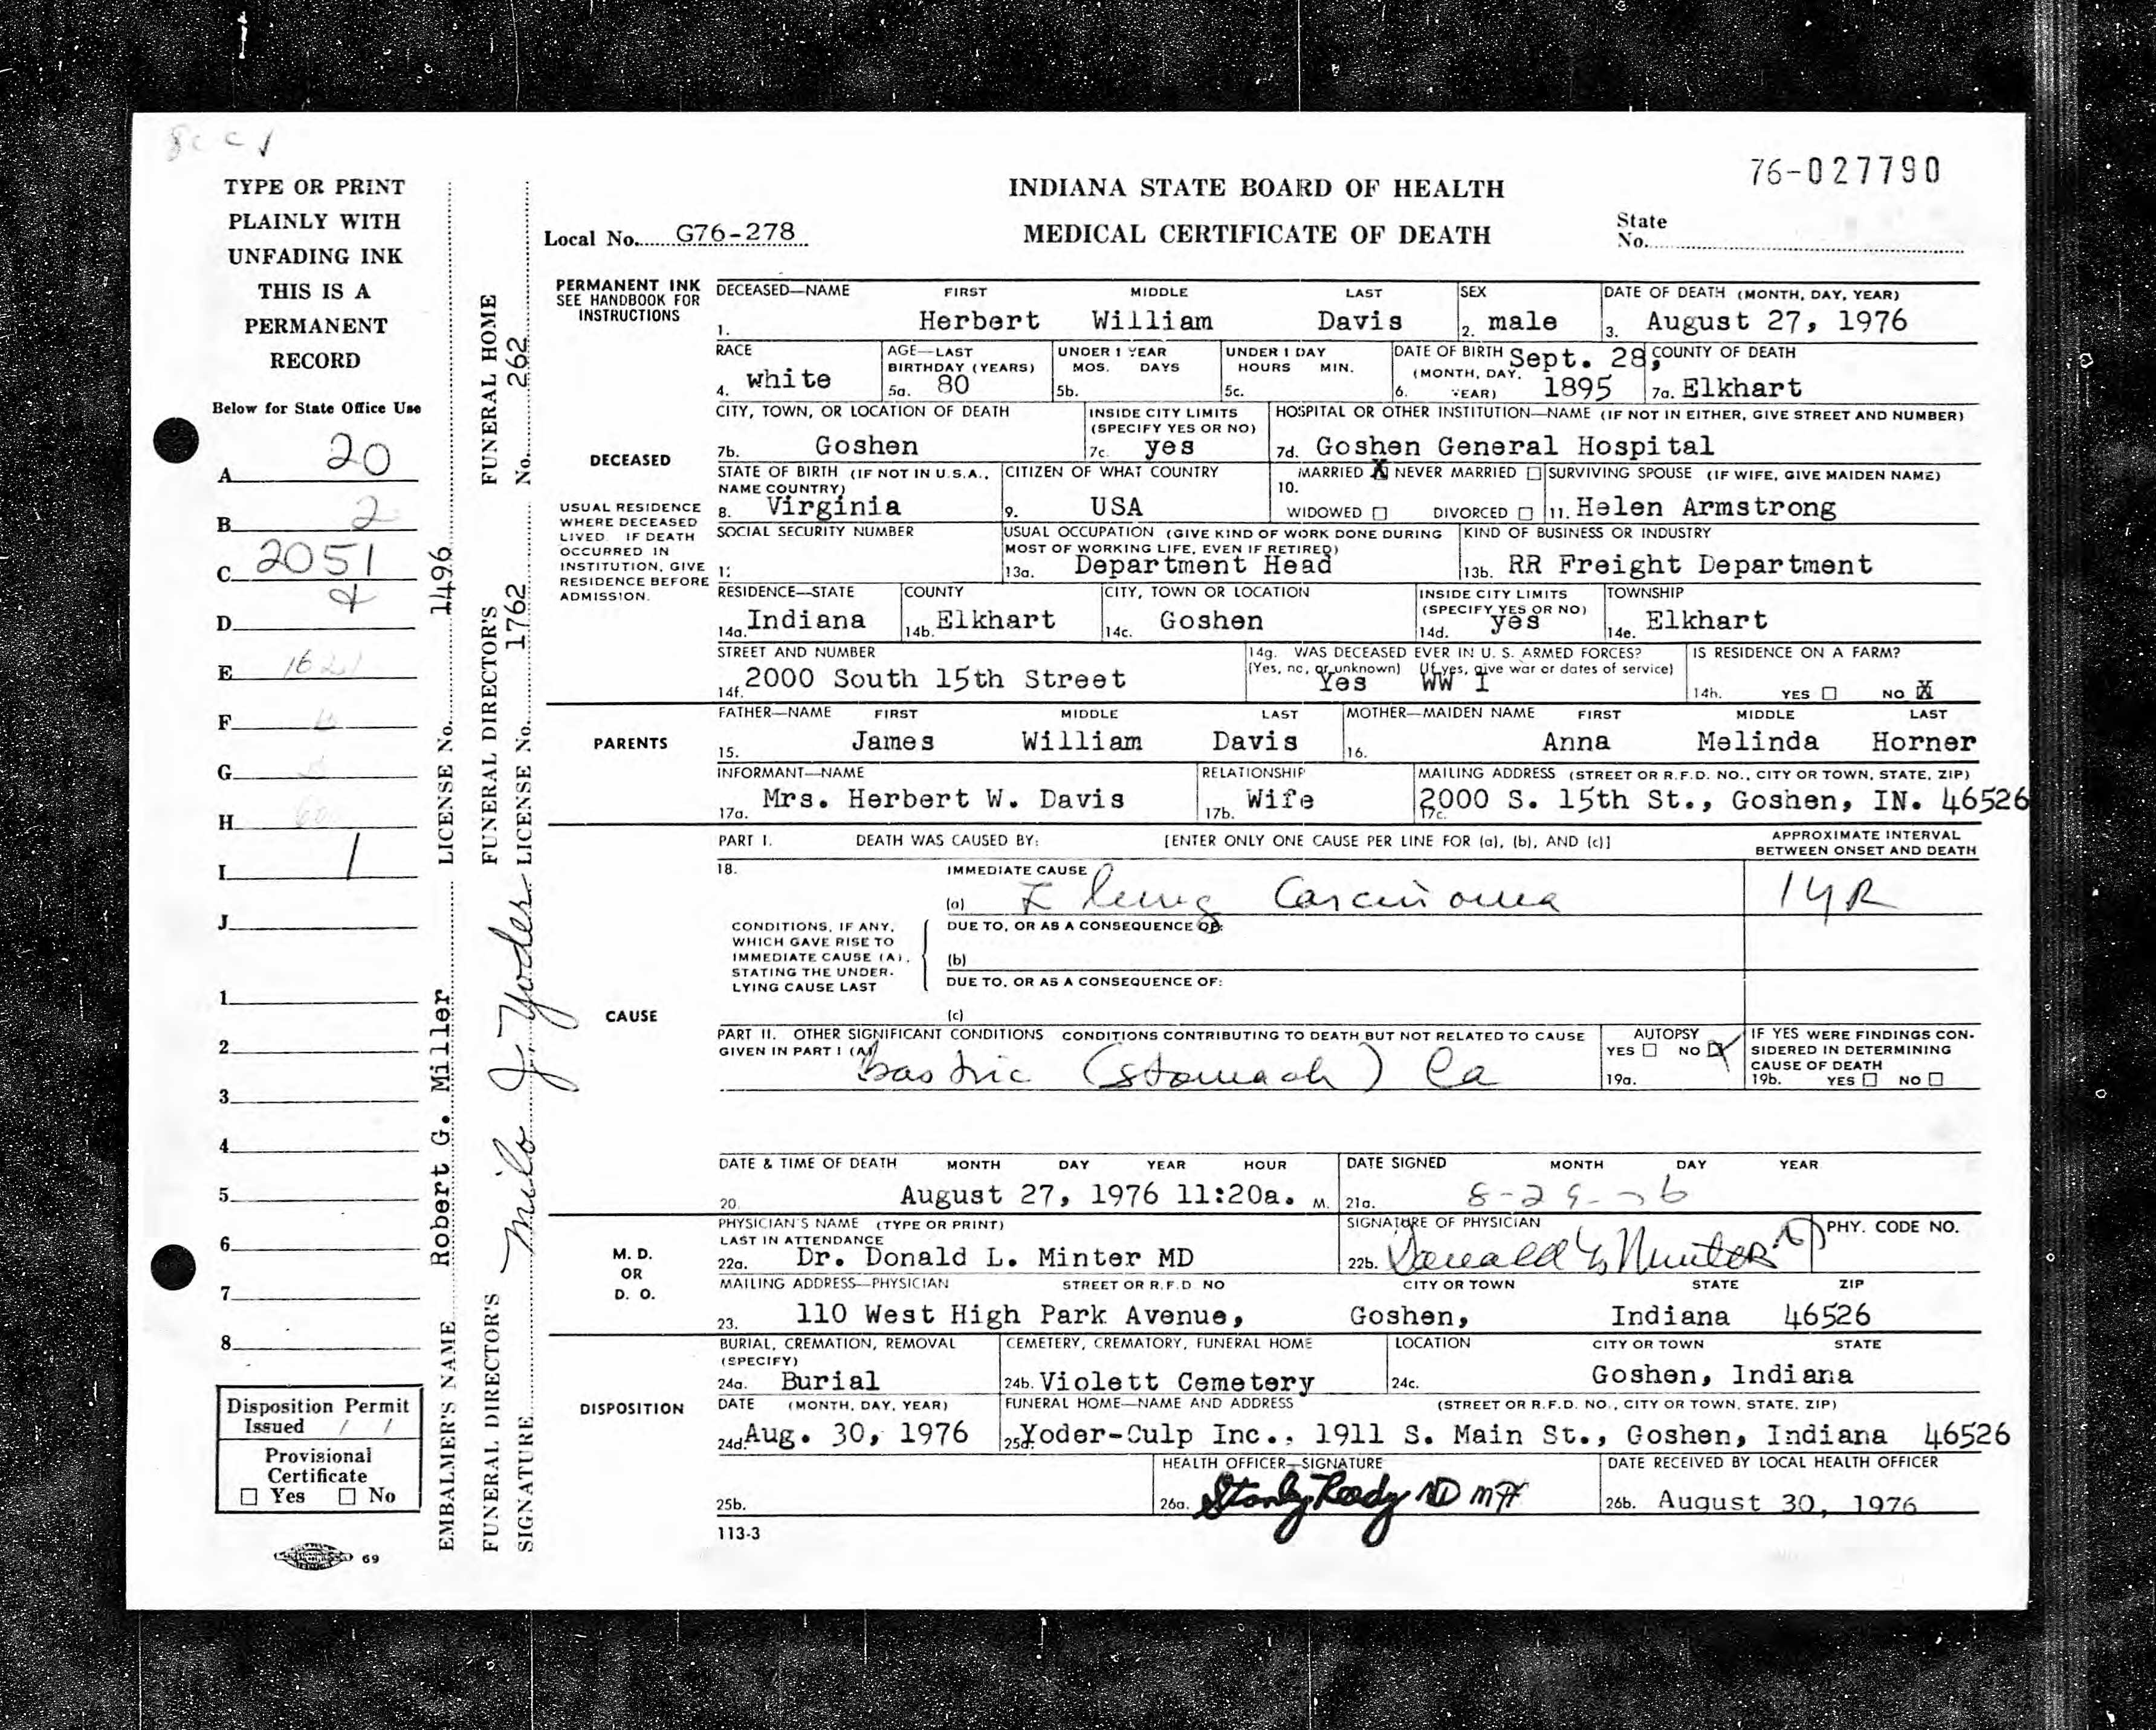 76-027790
INDIANA STATE BOARD OF HEALTH
Local No. G76-278
MEDICAL CERTIFICATE OF DEATH
State
No.
TYPE OR PRINT
PLAINLY WITH
UNFADING INK
THIS IS A
PERMANENT
RECORD
Below for State Office Use
A 20
B 2
C 2051
D
E 1621
F
G
H
I 1
J
1
2
3
4
5
6
7
8
Disposition Permit
Issued / /
Provisional
Certificate
☐ Yes ☐ No
69
EMBALMER'S NAME Robert G. Miller LICENSE No. 1496
FUNERAL DIRECTOR'S
SIGNATURE Milo J. Yoder
FUNERAL DIRECTOR'S
LICENSE No. 1762
FUNERAL HOME
No. 262
PERMANENT INK
SEE HANDBOOK FOR
INSTRUCTIONS
DECEASED—NAME FIRST MIDDLE LAST
1. Herbert William Davis
SEX
2. male
DATE OF DEATH (MONTH, DAY, YEAR)
3. August 27, 1976
RACE
4. white
AGE—LAST
BIRTHDAY (YEARS)
5a. 80
UNDER 1 YEAR
MOS. DAYS
5b.
UNDER 1 DAY
HOURS MIN.
5c.
DATE OF BIRTH Sept. 28,
(MONTH, DAY,
6. YEAR) 1895
COUNTY OF DEATH
7a. Elkhart
DECEASED
CITY, TOWN, OR LOCATION OF DEATH
7b. Goshen
INSIDE CITY LIMITS
(SPECIFY YES OR NO)
7c. yes
HOSPITAL OR OTHER INSTITUTION—NAME (IF NOT IN EITHER, GIVE STREET AND NUMBER)
7d. Goshen General Hospital
USUAL RESIDENCE
WHERE DECEASED
LIVED. IF DEATH
OCCURRED IN
INSTITUTION, GIVE
RESIDENCE BEFORE
ADMISSION.
STATE OF BIRTH (IF NOT IN U.S.A.,
NAME COUNTRY)
8. Virginia
CITIZEN OF WHAT COUNTRY
9. USA
MARRIED X NEVER MARRIED ☐
10.
WIDOWED ☐ DIVORCED ☐
SURVIVING SPOUSE (IF WIFE, GIVE MAIDEN NAME)
11. Helen Armstrong
SOCIAL SECURITY NUMBER
USUAL OCCUPATION (GIVE KIND OF WORK DONE DURING
MOST OF WORKING LIFE, EVEN IF RETIRED)
13a. Department Head
KIND OF BUSINESS OR INDUSTRY
13b. RR Freight Department
RESIDENCE—STATE
14a. Indiana
COUNTY
14b. Elkhart
CITY, TOWN OR LOCATION
14c. Goshen
INSIDE CITY LIMITS
(SPECIFY YES OR NO)
14d. yes
TOWNSHIP
14e. Elkhart
STREET AND NUMBER
14f. 2000 South 15th Street
14g. WAS DECEASED EVER IN U. S. ARMED FORCES?
(Yes, no, or unknown) (If yes, give war or dates of service)
Yes WW I
IS RESIDENCE ON A FARM?
14h. YES ☐ NO X
PARENTS
FATHER—NAME FIRST MIDDLE LAST
15. James William Davis
MOTHER—MAIDEN NAME FIRST MIDDLE LAST
16. Anna Melinda Horner
INFORMANT—NAME
17a. Mrs. Herbert W. Davis
RELATIONSHIP
17b. Wife
MAILING ADDRESS (STREET OR R.F.D. NO., CITY OR TOWN, STATE, ZIP)
17c. 2000 S. 15th St., Goshen, IN. 46526
CAUSE
PART I. DEATH WAS CAUSED BY: [ENTER ONLY ONE CAUSE PER LINE FOR (a), (b), AND (c)]
APPROXIMATE INTERVAL
BETWEEN ONSET AND DEATH
18. IMMEDIATE CAUSE
(a) lung Carcinoma 1 YR
CONDITIONS, IF ANY,
WHICH GAVE RISE TO
IMMEDIATE CAUSE (A),
STATING THE UNDER-
LYING CAUSE LAST
DUE TO, OR AS A CONSEQUENCE OF:
(b)
DUE TO, OR AS A CONSEQUENCE OF:
(c)
PART II. OTHER SIGNIFICANT CONDITIONS CONDITIONS CONTRIBUTING TO DEATH BUT NOT RELATED TO CAUSE
GIVEN IN PART I (A)
Gastric (stomach) Ca
AUTOPSY
YES ☐ NO X
19a.
IF YES WERE FINDINGS CON-
SIDERED IN DETERMINING
CAUSE OF DEATH
19b. YES ☐ NO ☐
DATE & TIME OF DEATH MONTH DAY YEAR HOUR
20. August 27, 1976 11:20a. M.
DATE SIGNED MONTH DAY YEAR
21a. 8-29-76
M. D.
OR
D. O.
PHYSICIAN'S NAME (TYPE OR PRINT)
LAST IN ATTENDANCE
22a. Dr. Donald L. Minter MD
SIGNATURE OF PHYSICIAN
22b. Donald L Minter
PHY. CODE NO.
MAILING ADDRESS—PHYSICIAN STREET OR R.F.D. NO CITY OR TOWN STATE ZIP
23. 110 West High Park Avenue, Goshen, Indiana 46526
DISPOSITION
BURIAL, CREMATION, REMOVAL
(SPECIFY)
24a. Burial
CEMETERY, CREMATORY, FUNERAL HOME
24b. Violett Cemetery
LOCATION CITY OR TOWN STATE
24c. Goshen, Indiana
DATE (MONTH, DAY, YEAR)
24d. Aug. 30, 1976
FUNERAL HOME—NAME AND ADDRESS (STREET OR R.F.D. NO., CITY OR TOWN, STATE, ZIP)
25. Yoder-Culp Inc., 1911 S. Main St., Goshen, Indiana 46526
25b.
HEALTH OFFICER—SIGNATURE
26a.
DATE RECEIVED BY LOCAL HEALTH OFFICER
26b. August 30, 1976
113-3